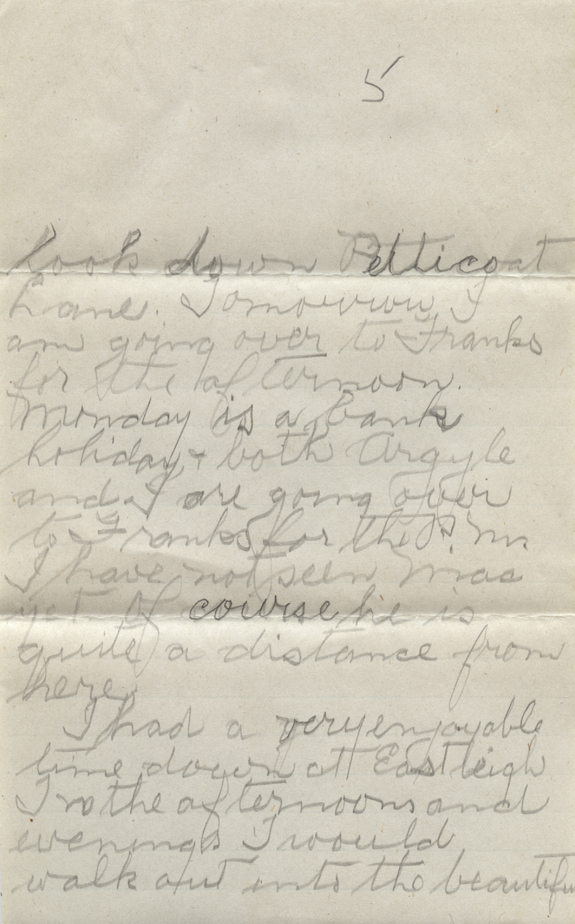 5
look down Petticoat
Lane. Tomorrow I
am going over to Franks
for the afternoon.
Monday is a bank
holiday & both Argyle
and I are going over
to Franks for the P.M.
I have not seen Mac
yet of course he is
quite a distance from
here.
I had a very enjoyable
time down att Eastleigh
In the afternoons and
evenings I would
walk out into the beautiful